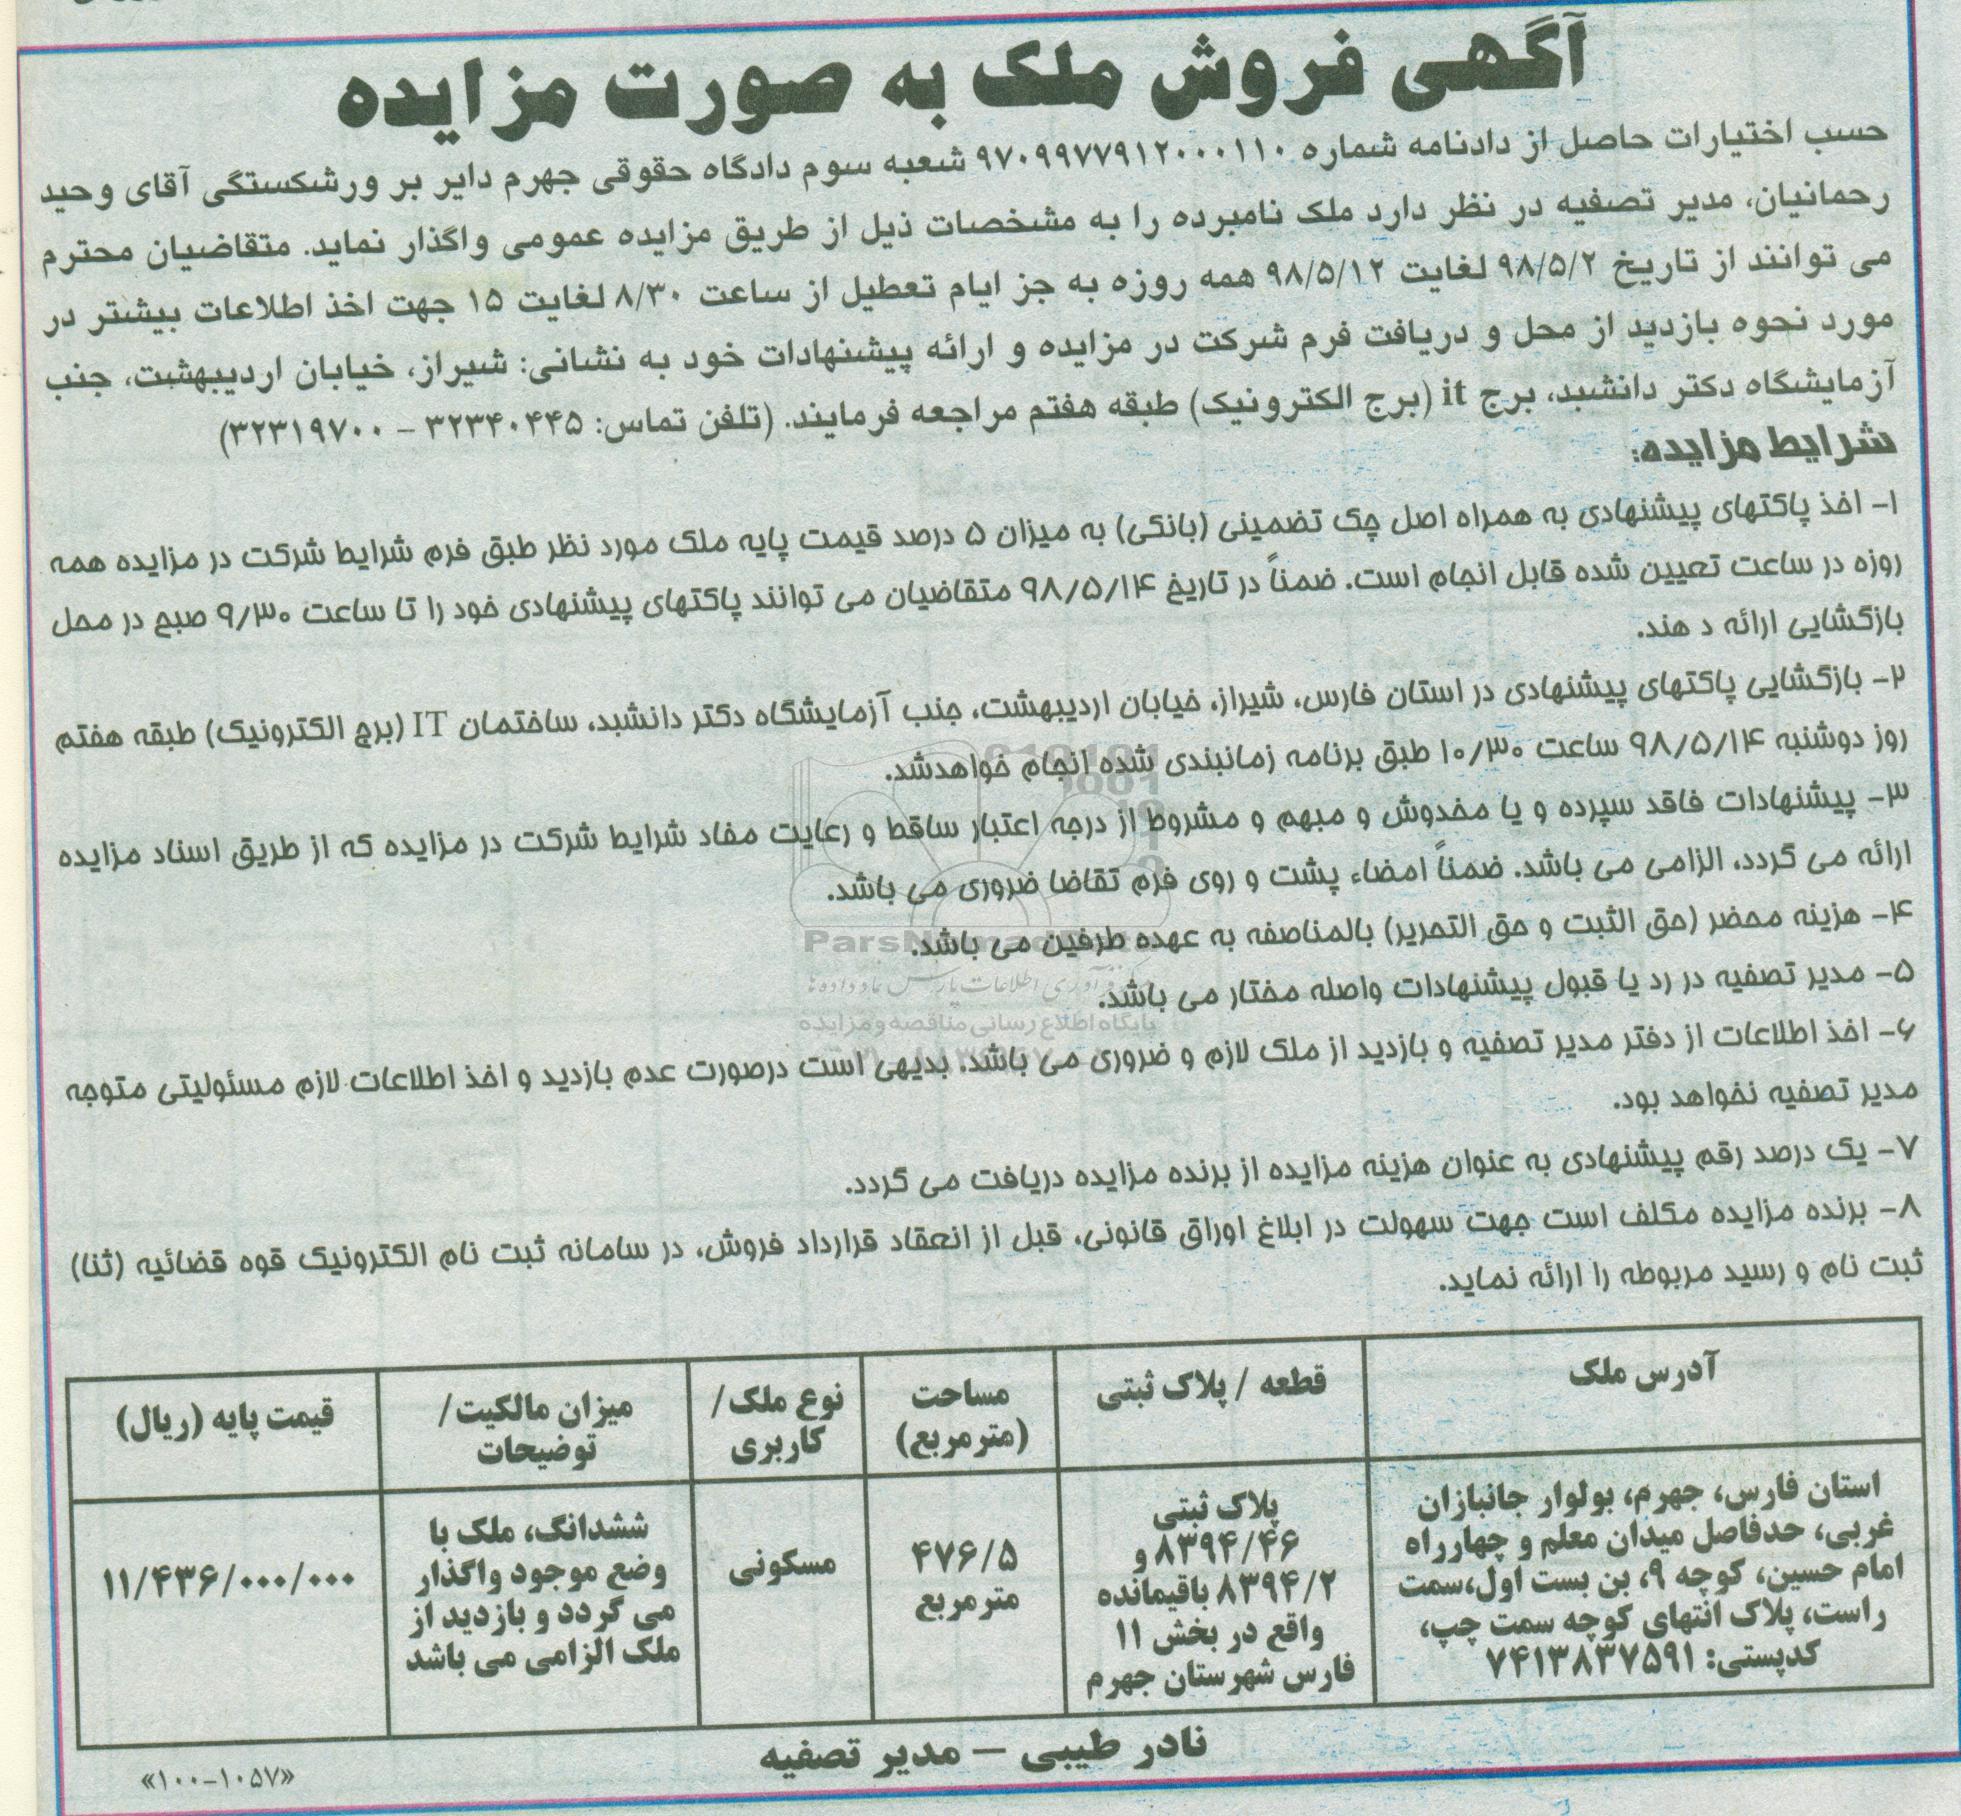 آگهی فروش ملک به صورت مزایده
حسب اختیارات حاصل از دادنامه شماره ۹۷۰۹۹۷۷۹۱۲۰۰۰۱۱۰ شعبه سوم دادگاه حقوقی جهرم دایر بر ورشکستگی آقای وحید
رحمانیان، مدیر تصفیه در نظر دارد ملک نامبرده را به مشخصات ذیل از طریق مزایده عمومی واگذار نماید. متقاضیان محترم
می توانند از تاریخ ۹۸/۵/۲ لغایت ۹۸/۵/۱۲ همه روزه به جز ایام تعطیل از ساعت ۸/۳۰ لغایت ۱۵ جهت اخذ اطلاعات بیشتر در
مورد نحوه بازدید از محل و دریافت فرم شرکت در مزایده و ارائه پیشنهادات خود به نشانی: شیراز، خیابان اردیبهشت، جنب
آزمایشگاه دکتر دانشبد، برج it (برج الکترونیک) طبقه هفتم مراجعه فرمایند. (تلفن تماس: ۳۲۳۴۰۴۴۵ – ۳۲۳۱۹۷۰۰)
شرایط مزایده:
۱- اخذ پاکتهای پیشنهادی به همراه اصل چک تضمینی (بانکی) به میزان ۵ درصد قیمت پایه ملک مورد نظر طبق فرم شرایط شرکت در مزایده همه
روزه در ساعت تعیین شده قابل انجام است. ضمناً در تاریخ ۹۸/۵/۱۴ متقاضیان می توانند پاکتهای پیشنهادی خود را تا ساعت ۹/۳۰ صبح در محل
بازگشایی ارائه د هند.
۲- بازگشایی پاکتهای پیشنهادی در استان فارس، شیراز، خیابان اردیبهشت، جنب آزمایشگاه دکتر دانشبد، ساختمان IT (برج الکترونیک) طبقه هفتم
روز دوشنبه ۹۸/۵/۱۴ ساعت ۱۰/۳۰ طبق برنامه زمانبندی شده انجام خواهدشد.
۳- پیشنهادات فاقد سپرده و یا مخدوش و مبهم و مشروط از درجه اعتبار ساقط و رعایت مفاد شرایط شرکت در مزایده که از طریق اسناد مزایده
ارائه می گردد، الزامی می باشد. ضمناً امضاء پشت و روی فرم تقاضا ضروری می باشد.
۴- هزینه محضر (حق الثبت و حق التحریر) بالمناصفه به عهده طرفین می باشد.
۵- مدیر تصفیه در رد یا قبول پیشنهادات واصله مختار می باشد.
۶- اخذ اطلاعات از دفتر مدیر تصفیه و بازدید از ملک لازم و ضروری می باشد. بدیهی است درصورت عدم بازدید و اخذ اطلاعات لازم مسئولیتی متوجه
مدیر تصفیه نخواهد بود.
۷- یک درصد رقم پیشنهادی به عنوان هزینه مزایده از برنده مزایده دریافت می گردد.
۸- برنده مزایده مکلف است جهت سهولت در ابلاغ اوراق قانونی، قبل از انعقاد قرارداد فروش، در سامانه ثبت نام الکترونیک قوه قضائیه (ثنا)
ثبت نام و رسید مربوطه را ارائه نماید.
آدرس ملک
قطعه / پلاک ثبتی
مساحت
(مترمربع)
نوع ملک/
کاربری
میزان مالکیت/
توضیحات
قیمت پایه (ریال)
استان فارس، جهرم، بولوار جانبازان
غربی، حدفاصل میدان معلم و چهارراه
امام حسین، کوچه ۹، بن بست اول،سمت
راست، پلاک انتهای کوچه سمت چپ،
کدپستی: ۷۴۱۳۸۳۷۵۹۱
پلاک ثبتی
۸۳۹۴/۴۶ و
۸۳۹۴/۲ باقیمانده
واقع در بخش ۱۱
فارس شهرستان جهرم
۴۷۶/۵
مترمربع
مسکونی
ششدانگ، ملک با
وضع موجود واگذار
می گردد و بازدید از
ملک الزامی می باشد
۱۱/۴۳۶/۰۰۰/۰۰۰
نادر طیبی – مدیر تصفیه
«۱۰۰-۱۰۵۷»
پایگاه اطلاع رسانی مناقصه و مزایده